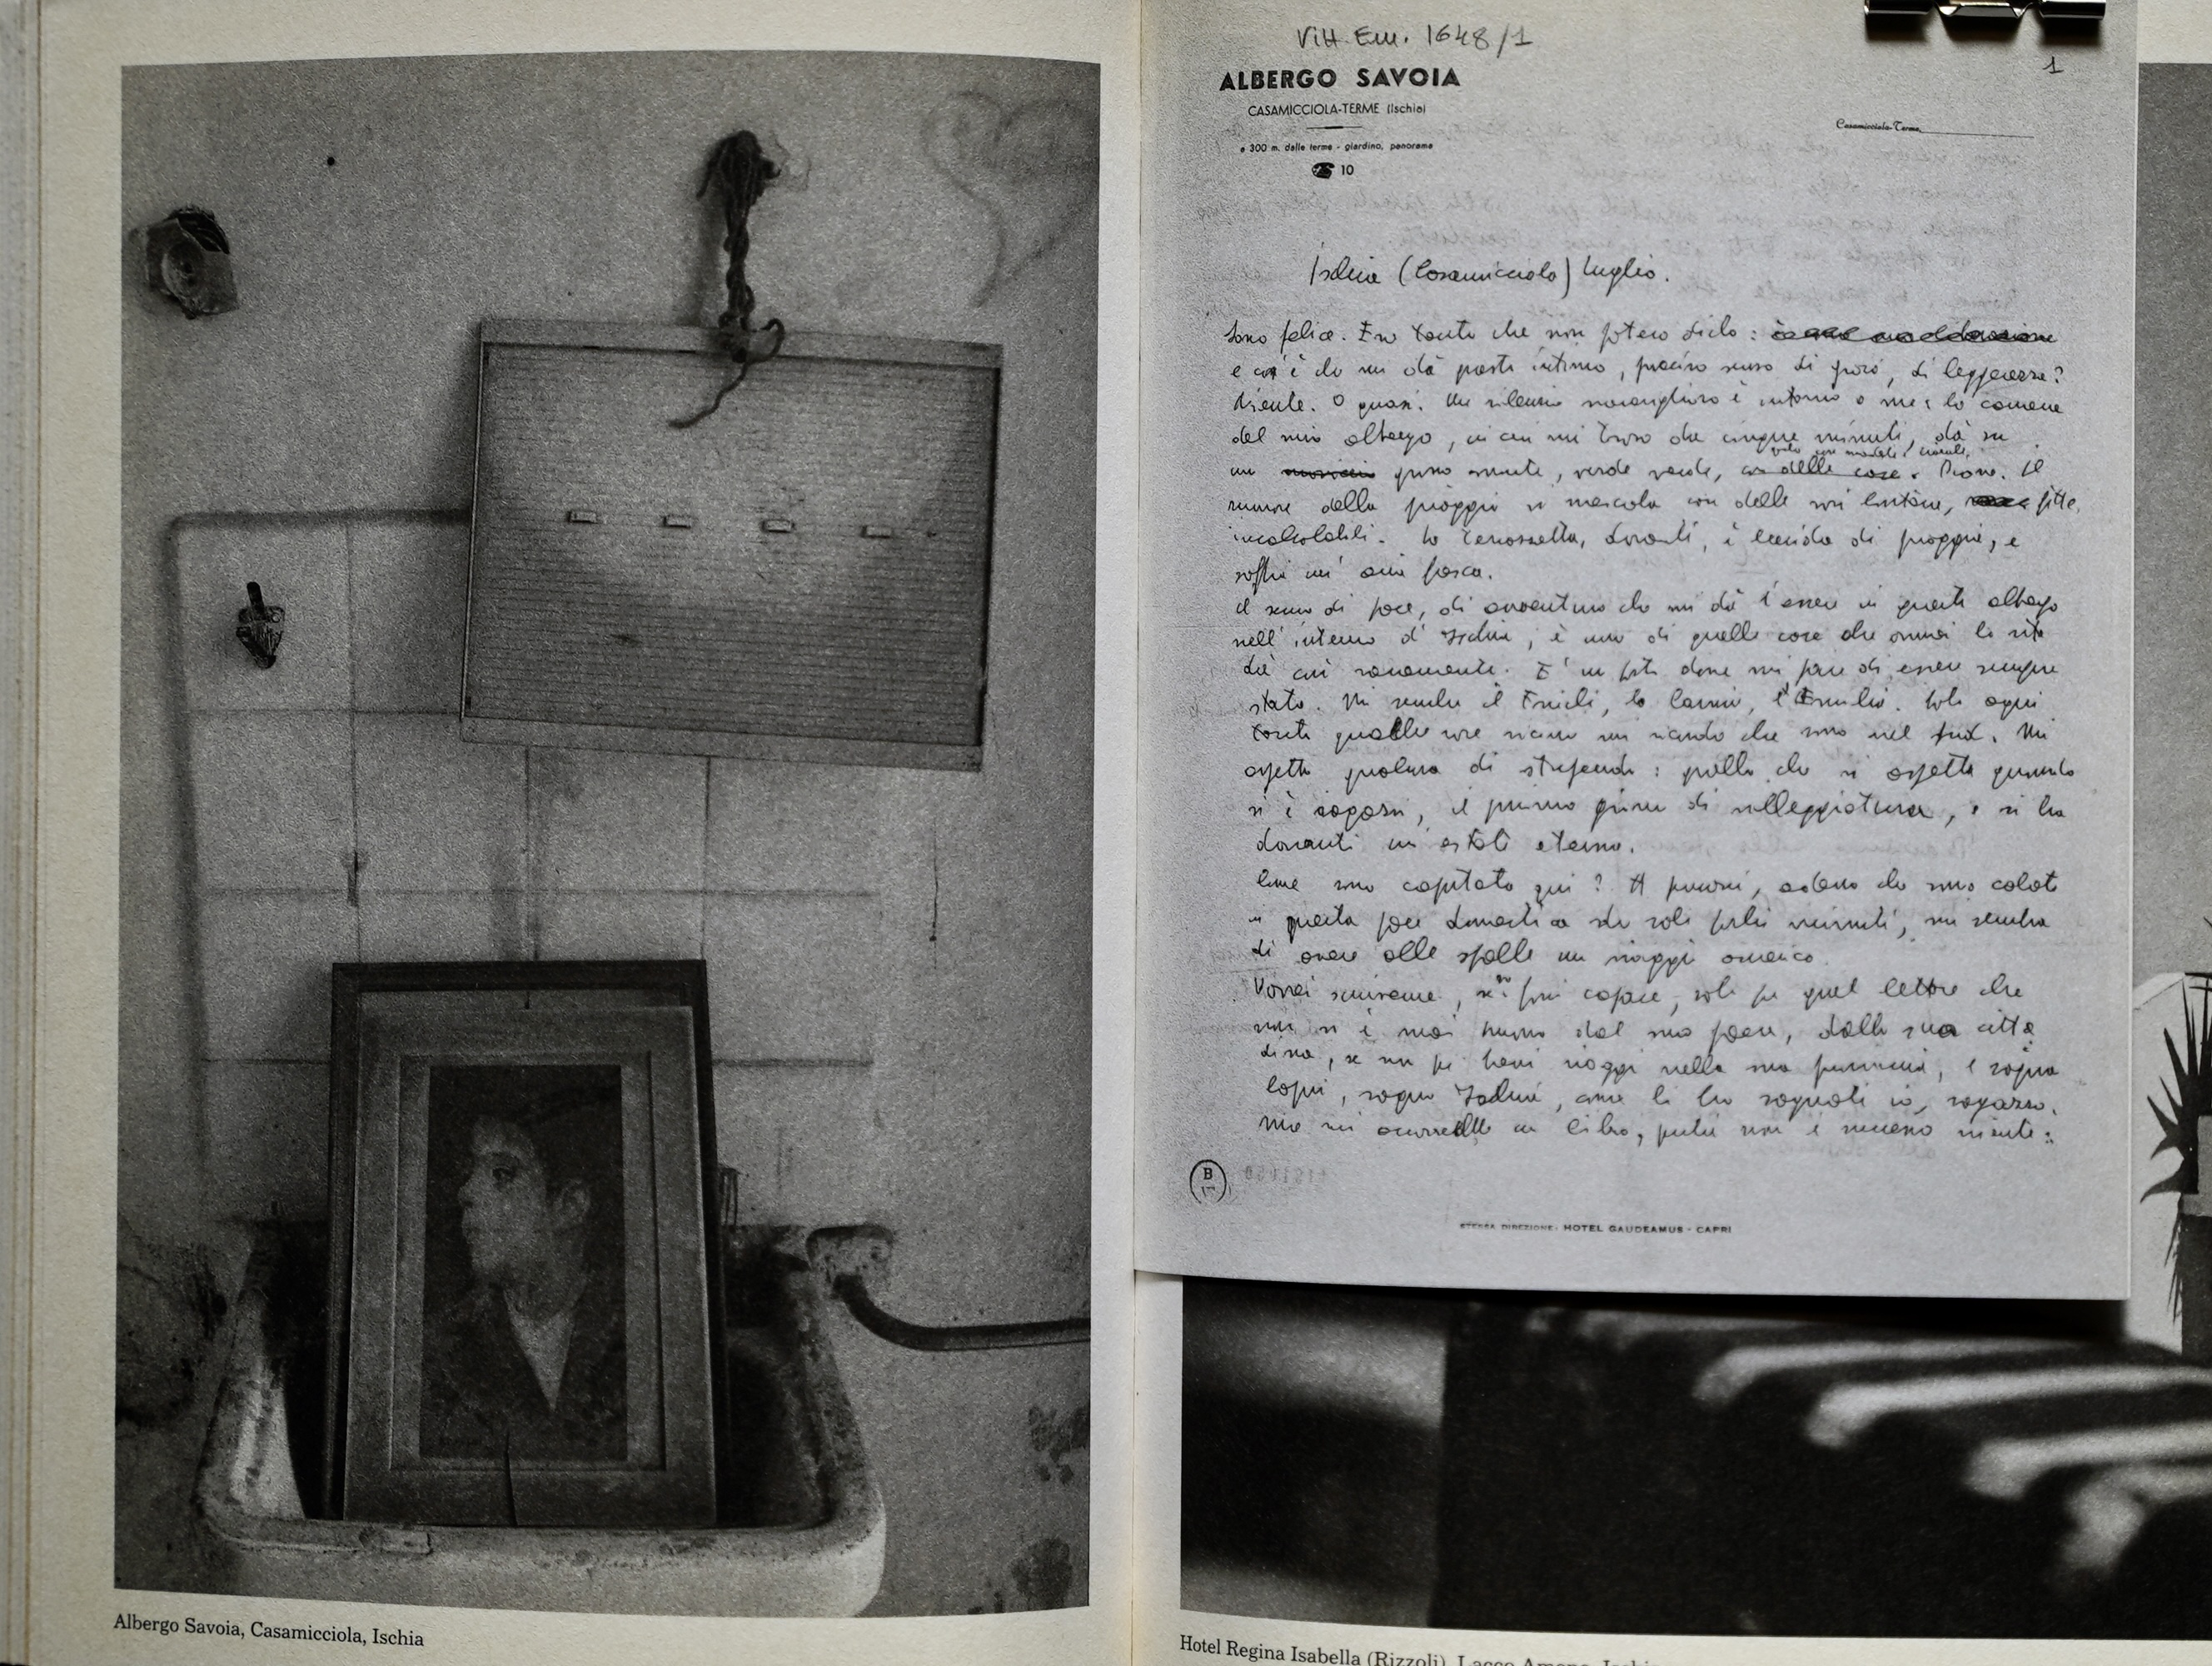 Albergo Savoia, Casamicciola, Ischia
Vitt. Em. 1648/1
1
ALBERGO SAVOIA
CASAMICCIOLA-TERME (Ischia)
a 300 m. dalle terme - giardino, panorama
10
Casamicciola-Terme,
Ischia (Casamicciola) luglio.
Sono felice. Era tanto che non potevo dirlo:
e cos'è che mi dà questo intimo, preciso senso di gioia, di leggerezza?
Niente. O quasi. Un silenzio meraviglioso è intorno a me: la camera
del mio albergo, in cui mi trovo da cinque minuti, dà su
un monte, verde verde, Piove. Il
rumore della pioggia si mescola con delle voci lontane, fitte,
incalcolabili. La terrazzetta, davanti, è lucida di pioggia, e
soffia un'aria fresca.
Il senso di pace, di avventura che mi dà l'essere in questo albergo
nell'interno d'Ischia, è una di quelle cose che ormai la vita
dà così raramente. E' un posto dove mi pare di essere sempre
stato. Mi sembra il Friuli, la Carnia, l'Emilia. Solo ogni
tanto qualche voce vicina mi ricorda che sono nel sud. Mi
aspetto qualcosa di stupendo: quello che si aspetta quando
si è ragazzi, il primo giorno di villeggiatura, e si ha
davanti un'estate eterna.
Come sono capitato qui? A pensarci, adesso che sono calato
in questa pace domestica da soli pochi minuti, mi sembra
di avere alle spalle un viaggio omerico.
Vorrei scriverne, se ne fossi capace, solo per quel lettore che
non si è mai mosso dal suo paese, dalla sua citta
dina, se non per brevi viaggi nella sua provincia, e sogna
Capri, sogna Ischia, come li ho sognati io, ragazzo.
Ma mi occorrerebbe un libro, perché non è successo niente:
B
STESSA DIREZIONE: HOTEL GAUDEAMUS - CAPRI
Hotel Regina Isabella (Rizzoli), Lacco Ameno, Ischia